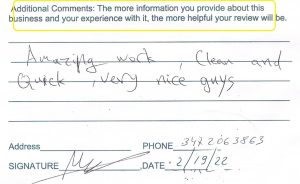 Additional Comments: The more information you provide about this
business and your experience with it, the more helpful your review will be.
Amazing work , Clean and
Quick , very nice guys
Address
PHONE 347 2063863
SIGNATURE
DATE 2/19/22